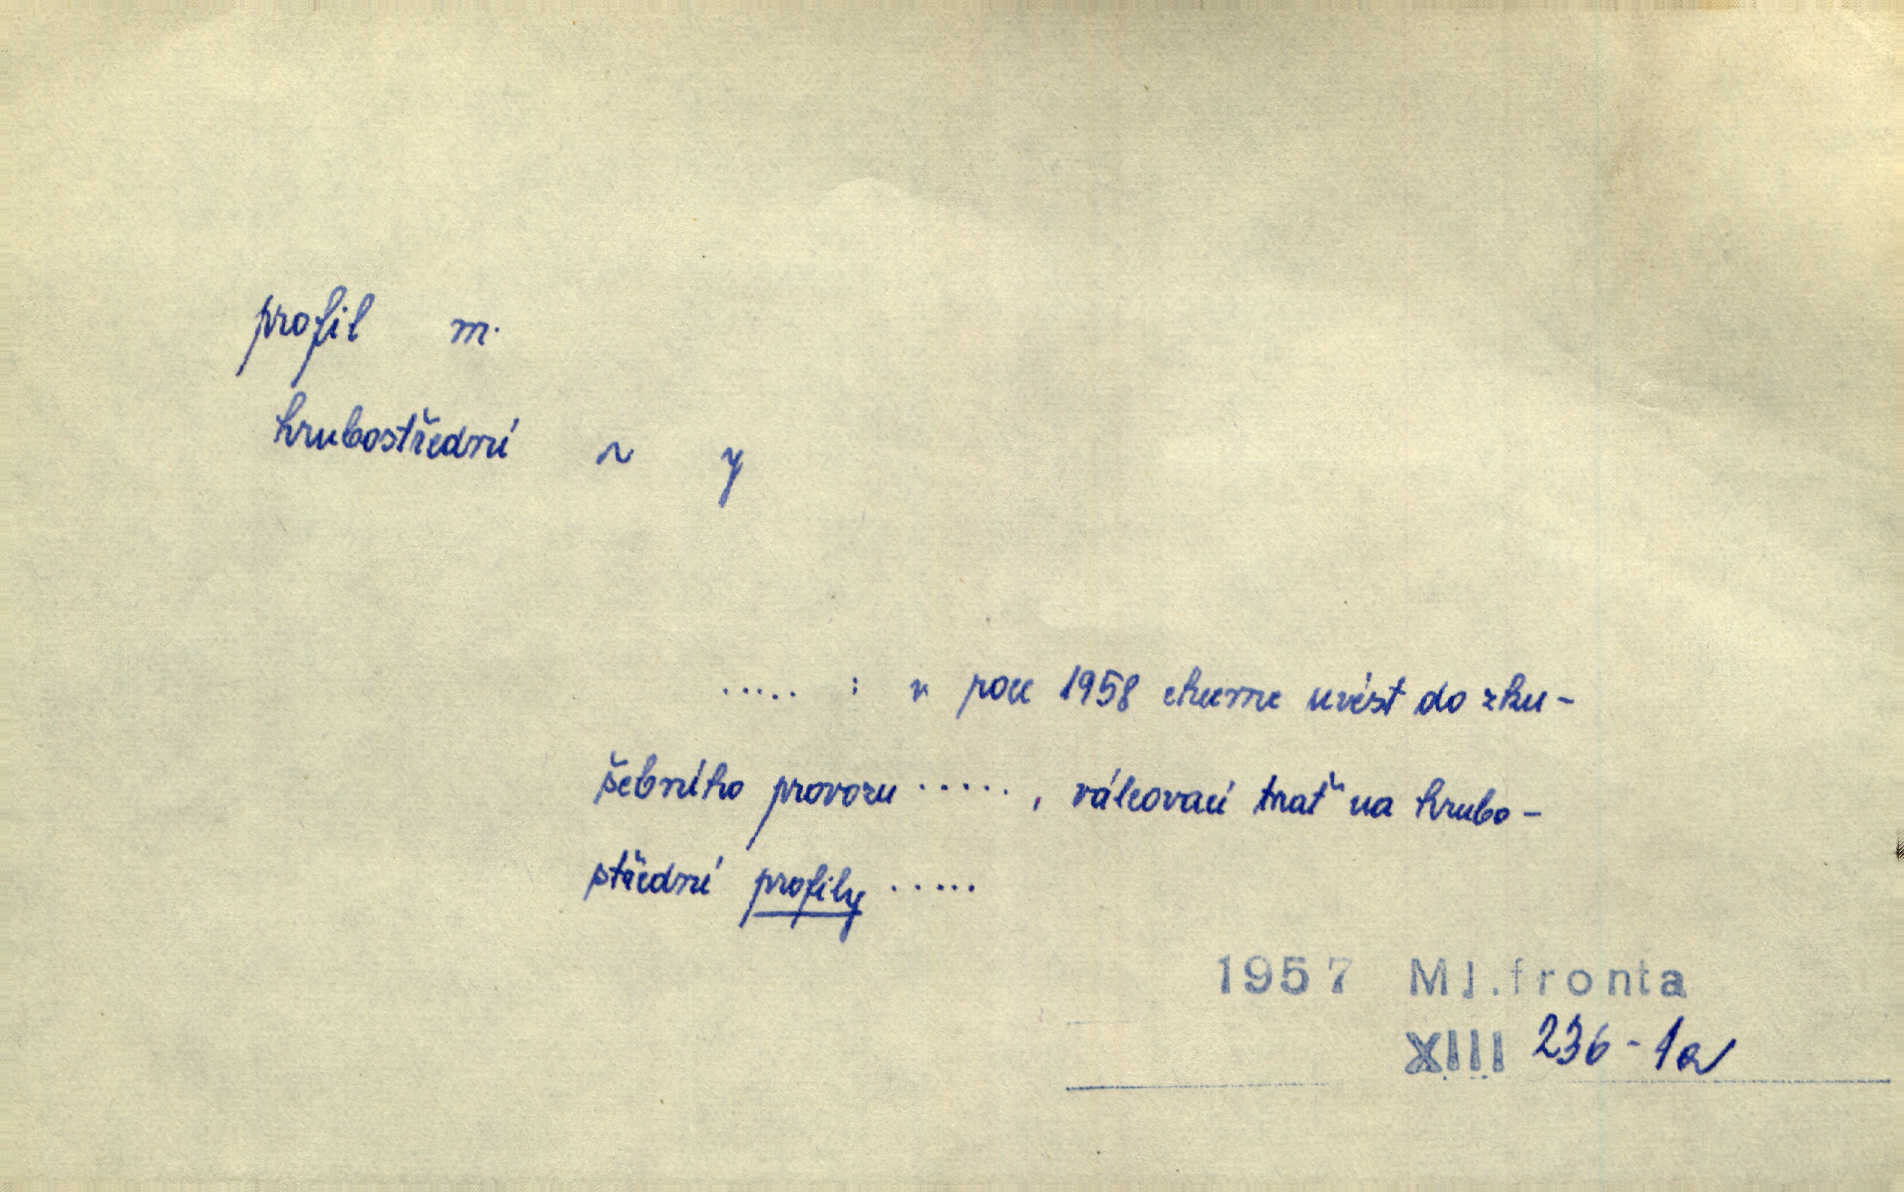 profil m.
hrubostřední ~ y
..... : v roce 1958 chceme uvést do zku-
šebního provozu ....., válcovací trať na hrubo-
střední profily .....
1957 Ml.fronta
XIII 236-1a